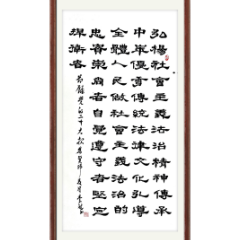 弘揚社會主義法治精神傳承
中華優秀傳統法律文化引導
全體人民做社會主義法治的
忠實崇尚者自覺遵守者堅定
捍衛者
節錄黨的二十大報告